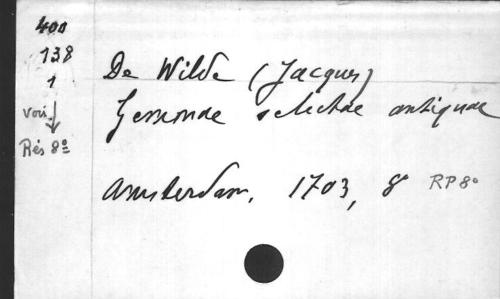 400
138
1
voir
↓
Rés 8º
De Wilde (Jacques)
Gemmae selectae antiquae
Amsterdam, 1703, 8 RP8º